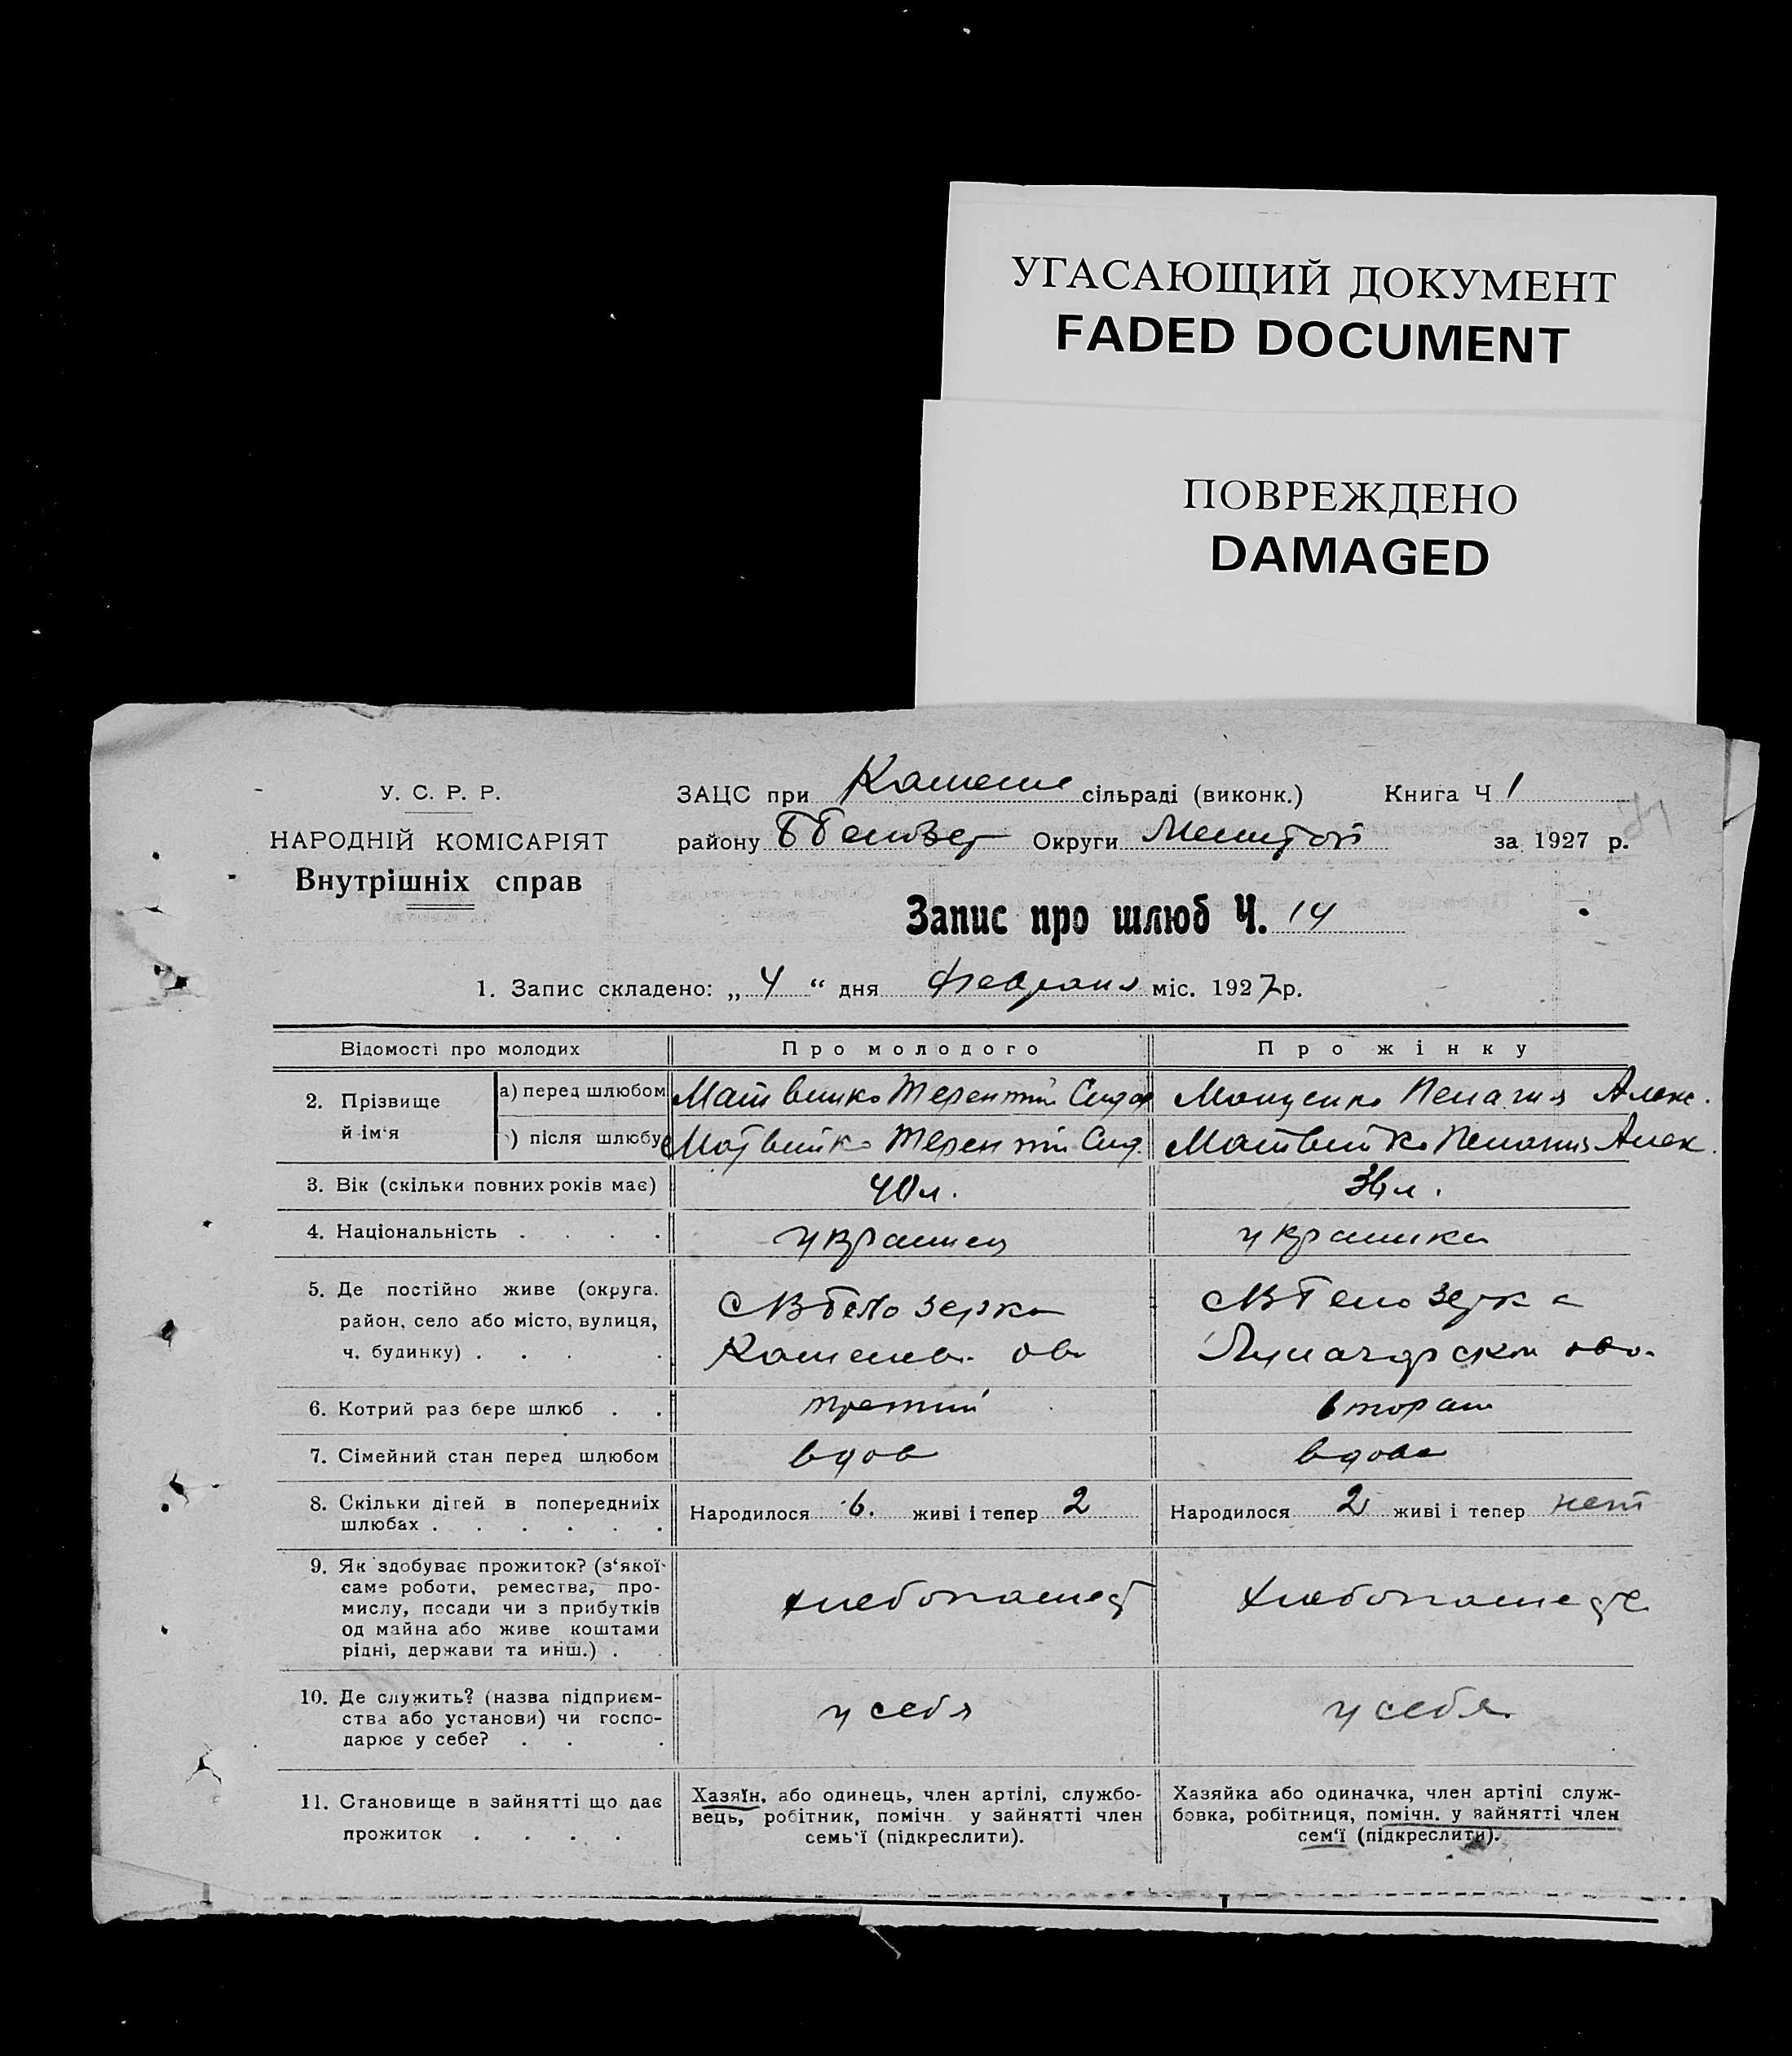 УГАСАЮЩИЙ ДОКУМЕНТ
FADED DOCUMENT
ПОВРЕЖДЕНО
DAMAGED
У. С. Р. Р.
НАРОДНІЙ КОМІСАРІЯТ
Внутрішніх справ
ЗАЦС при Каменс сільраді (виконк.) Книга Ч 1
району Округи Мелитоп за 1927 р.
Запис про шлюб Ч. 14
1. Запис складено: „ 4 “ дня февраля міс. 1927 р.
Відомості про молодих
Про молодого
Про жінку
2. Прізвище й ім‘я
а) перед шлюбом
Матвиенко Терентий Сидор
Моценко Пелагия Алекс.
) після шлюбу
Матвиенко Терентий Сид.
Матвиенко Пелагия Алек.
3. Вік (скільки повних років має)
40 л.
36 л.
4. Національність . . . .
украинец
украинка
5. Де постійно живе (округа.
район, село або місто, вулиця,
ч. будинку) . . . .
С В Белозерка
Каменск. ова
С В Белозерка
Луначарском ово.
6. Котрий раз бере шлюб . .
третий
вторая
7. Сімейний стан перед шлюбом
вдов
вдова
8. Скільки дітей в попередниіх
шлюбах . . . . . .
Народилося 6. живі і тепер 2
Народилося 2 живі і тепер нет
9. Як здобуває прожиток? (з‘якої-
саме роботи, ремества, про-
мислу, посади чи з прибутків
од майна або живе коштами
рідні, держави та инш.) . .
хлебопашед
хлебопашедс
10. Де служить? (назва підприєм-
ства або установи) чи госпо-
дарює у себе? . . .
у себя
у себя.
11. Становище в зайнятті що дає
прожиток . . . .
Хазяїн, або одинець, член артілі, службо-
вець, робітник, помічн. у зайнятті член
семь‘ї (підкреслити).
Хазяйка або одиначка, член артілі служ-
бовка, робітниця, помічн. у зайнятті член
сем‘ї (підкреслити).